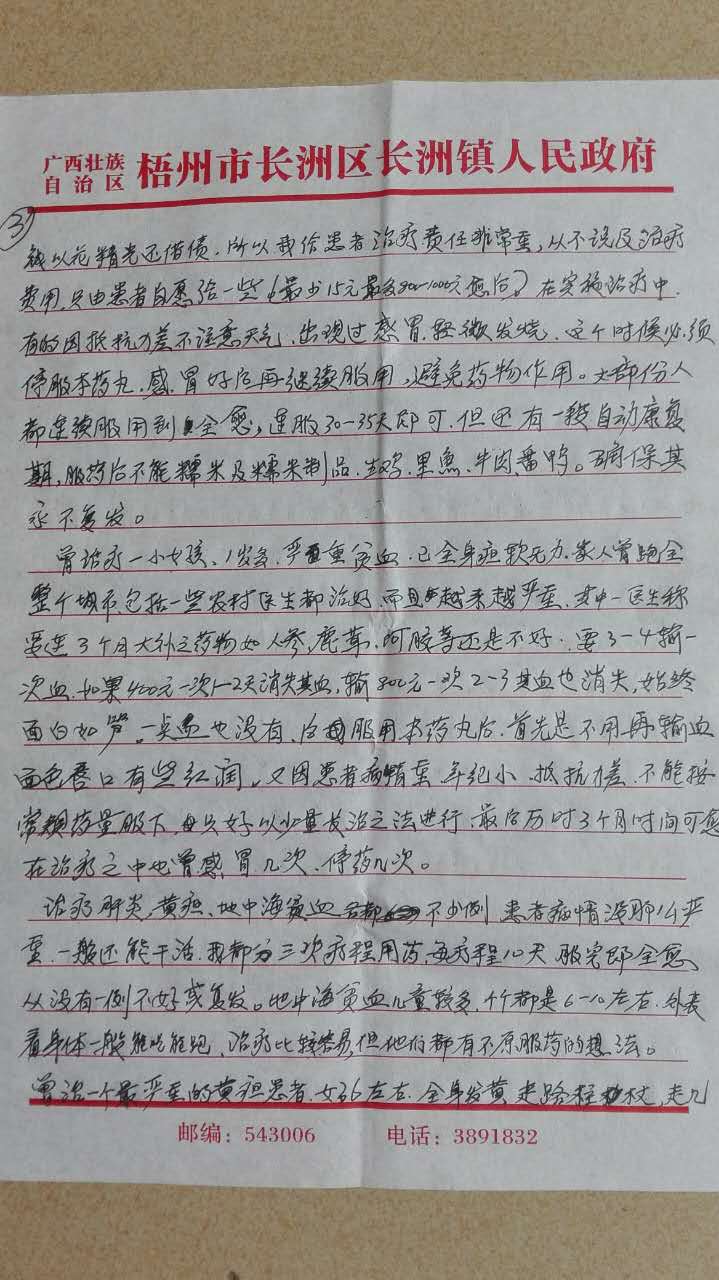 广西壮族
自治区 梧州市长洲区长洲镇人民政府
3
钱以花精光还借债。所以我给患者治疗费任非常重,从不说及治疗
费用,只由患者自愿给一些(最少15元最多900-1000元愈后)在实施治疗中,
有的因抵抗力差不注意天气,出现过感冒、轻微发烧,这个时候必须
停服本药丸,感冒好后再继续服用,避免药物作用。大部份人
都连续服用到全愈,连服30-35天即可,但还有一段自动康复
期,服药后不能糯米及糯米制品、生鸡、果鱼、牛肉、番鸭。确保其
永不复发。
曾治疗一小女孩,1岁多,严重贫血,已全身疲软无力,家人曾跑全
整个城市包括一些农村医生都治好,而且越来越严重,其中一医生称
要连3个月大补之药物如人参、鹿茸、阿胶等还是不好,要3-4输一
次血,如果400元一次1-2天消失其血,输800元一次2-3其血也消失,始终
面白如笋,一点血也没有,自服用本药丸后,首先是不用再输血
面色唇口有些红润,又因患者病情重,年纪小,抵抗力差,不能按
常规药量服下,只好以少量长治之法进行,最后历时3个月时间可愈
在治疗之中也曾感冒几次,停药几次。
治疗肝炎,黄疸,地中海贫血 不少例 患者病情没那么严
重,一般还能干活,我都分三次疗程用药,每疗程10天 服完即全愈,
从没有一例不好或复发。地中海贫血儿童较多,个都是6-10左右,外表
看身体一般能吃能跑,治疗比较容易但他们都有不原服药的想法。
曾治一个最严重的黄疸患者,女36左右,全身发黄,走路柱杖,走几
邮编:543006 电话:3891832